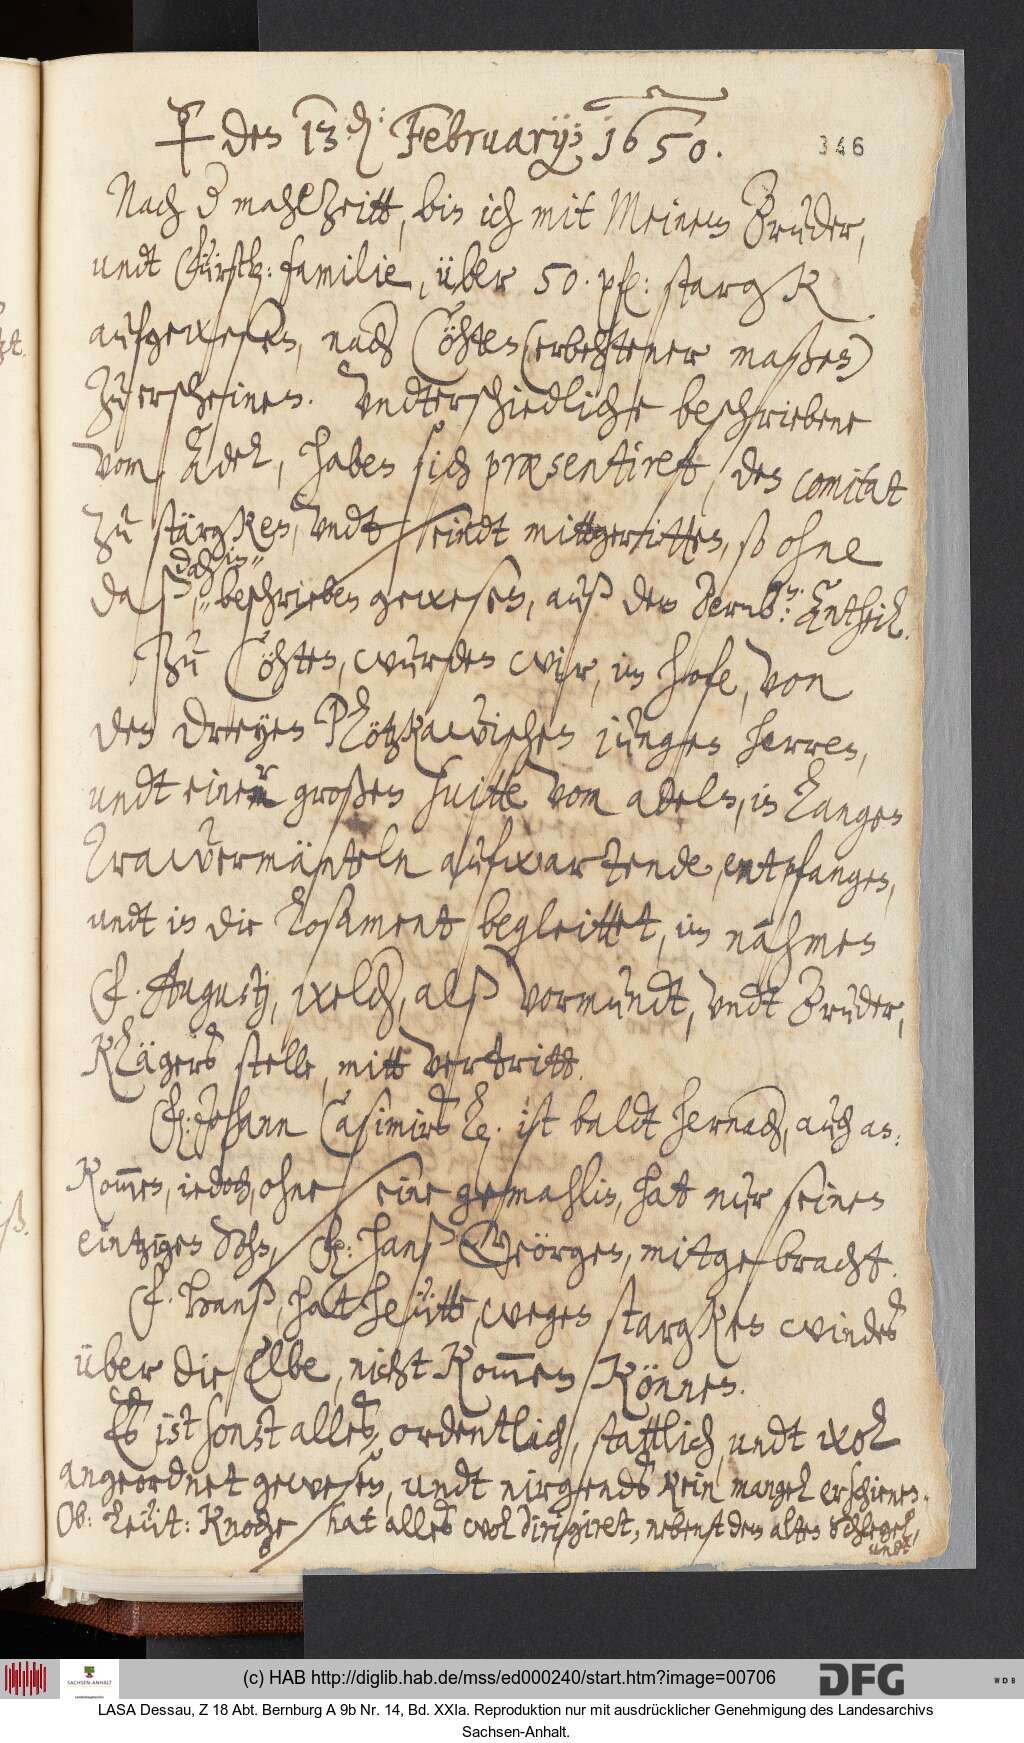 ♀ den 13.den: Februarij; 1650.
346
Nach der mahlzeitt, bin ich mit Meinem Bruder,
undt Fürstl: familie, über 50. pf: starg k
aufgewesen, nach Cöhten (erbehtener maßen)
zu erscheinen. Undterschiedliche beschriebene
vom Adel, haben sich præsentiret, den comitat
zu stärgken, undt seindt mittgeritten, ohne
daß, beschrieben gewesen, auß dem Bernb: Antheil.
Zu Cöhten, wurden wir, im hofe, von
den dreyen Plötzkawischen jungen herren,
undt einer großen suitte vom adeln, in langen
Trawermänteln aufwartende, entpfangen,
undt in die losament begleittet, im nahmen
F. Augustj, welcher, alß vormundt, undt Bruder,
Klägers stelle, mitt vertritt.
F: Johann Casimirs L. ist baldt hernach, auch an:
kommen, iedoch, ohne seine gemahlin, hat nur seinen
eintzigen Sohn, F: Hanß Geörgen, mitgebracht.
F. Hanß, hat heütte, wegen stargken windes
über die Elbe, nicht kommen können.
Es ist sonst alles, ordentlich, stattlich, undt wol
angeordnet gewesen, undt nirgends kein mangel erschienen.
Ob: Leüt: Knoche hat alles wol dirigiret, nebenst dem alten Schlegel,
undt
(c) HAB http://diglib.hab.de/mss/ed000240/start.htm?image=00706
SACHSEN-ANHALT
DFG
WDB
LASA Dessau, Z 18 Abt. Bernburg A 9b Nr. 14, Bd. XXIa. Reproduktion nur mit ausdrücklicher Genehmigung des Landesarchivs
Sachsen-Anhalt.